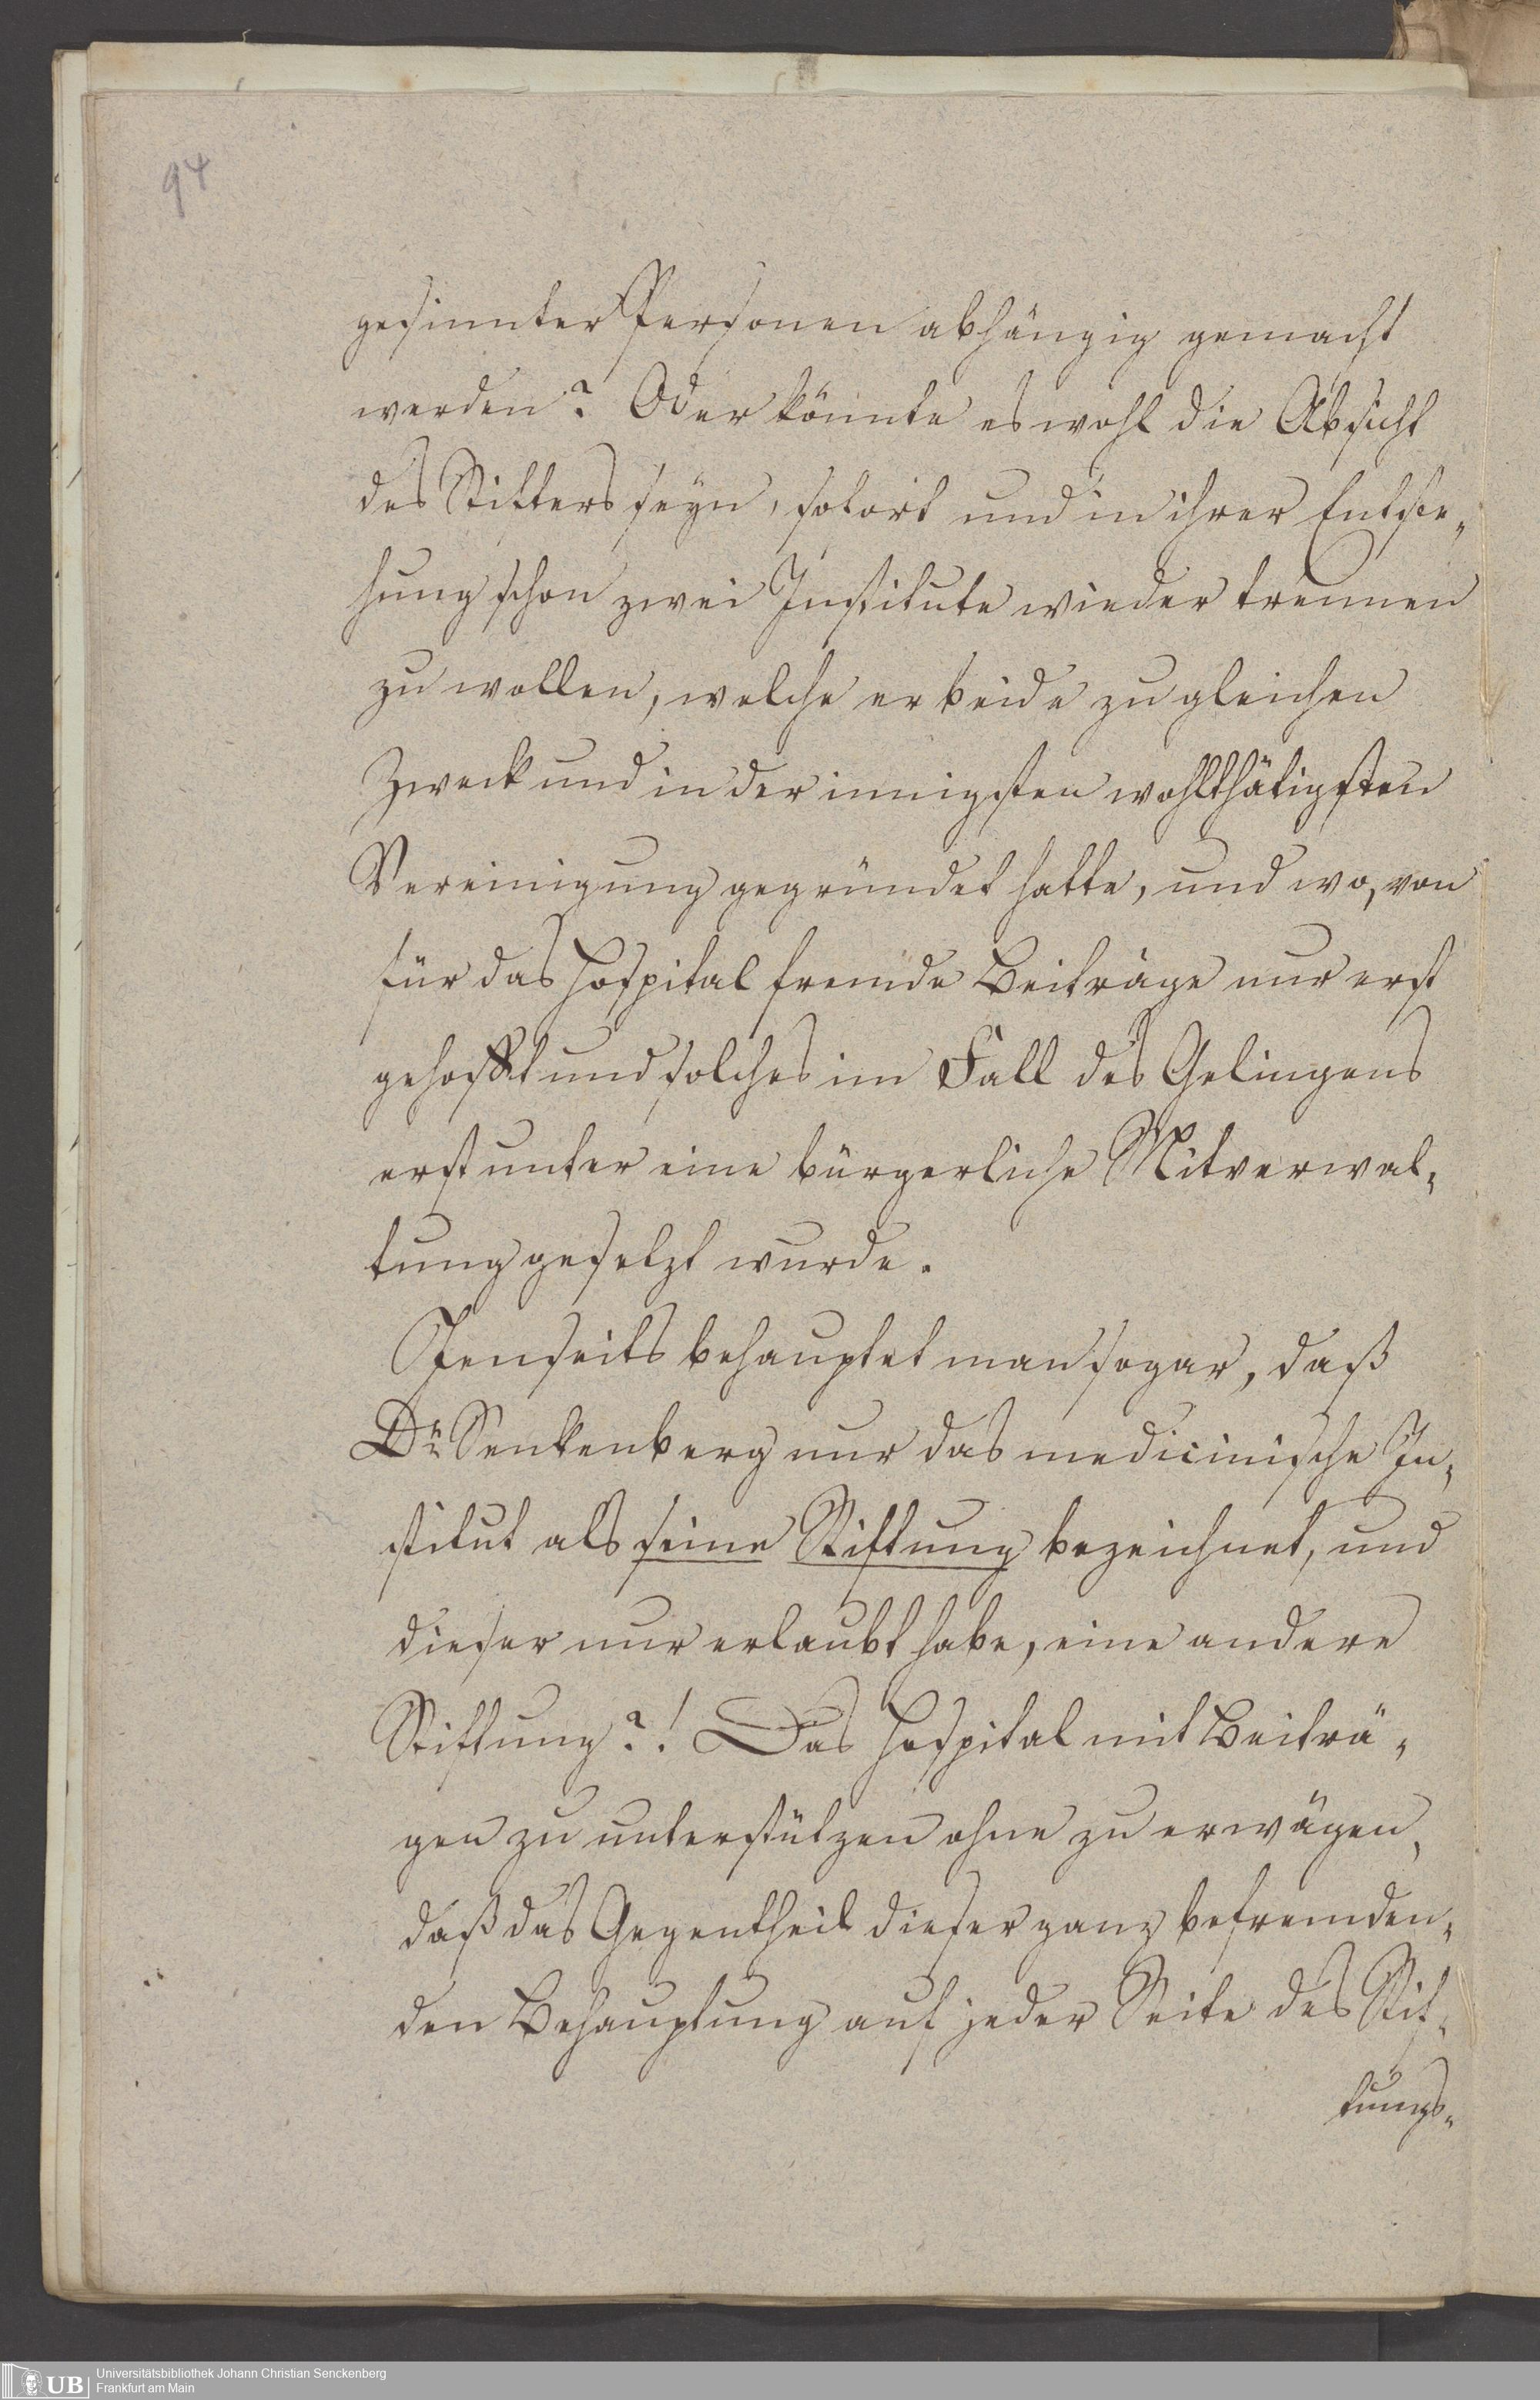 94
gesinnter Personen abhängig gemacht
werden? Oder könnte es wohl die Absicht
des Stifters seyn, sofort und in ihrer Entste-
hung schon zwei Institute wieder trennen
zu wollen, welche er beide zu gleichen
Zweck und in der innigsten wohlthätigsten
Vereinigung gegründet hatte, und wo, von
für das Hospital fremde Beiträge nur erst
gehofft und solches im Fall des Gelingens
erst unter eine bürgerliche Mitverwal-
tung gesetzt wurde.
Jenseits behauptet man sogar, daß
Dr Senkenberg nur das medicinische In-
stitut als seine Stiftung bezeichnet, und
dieser nur erlaubt habe, eine andere
Stiftung?! Das Hospital mit Beiträ-
gen zu unterstützen ohne zu erwägen,
daß das Gegentheil dieser ganz befremden-
den Behauptung auf jeder Seite des Stif-
tungs-
UB
Universitätsbibliothek Johann Christian Senckenberg
Frankfurt am Main